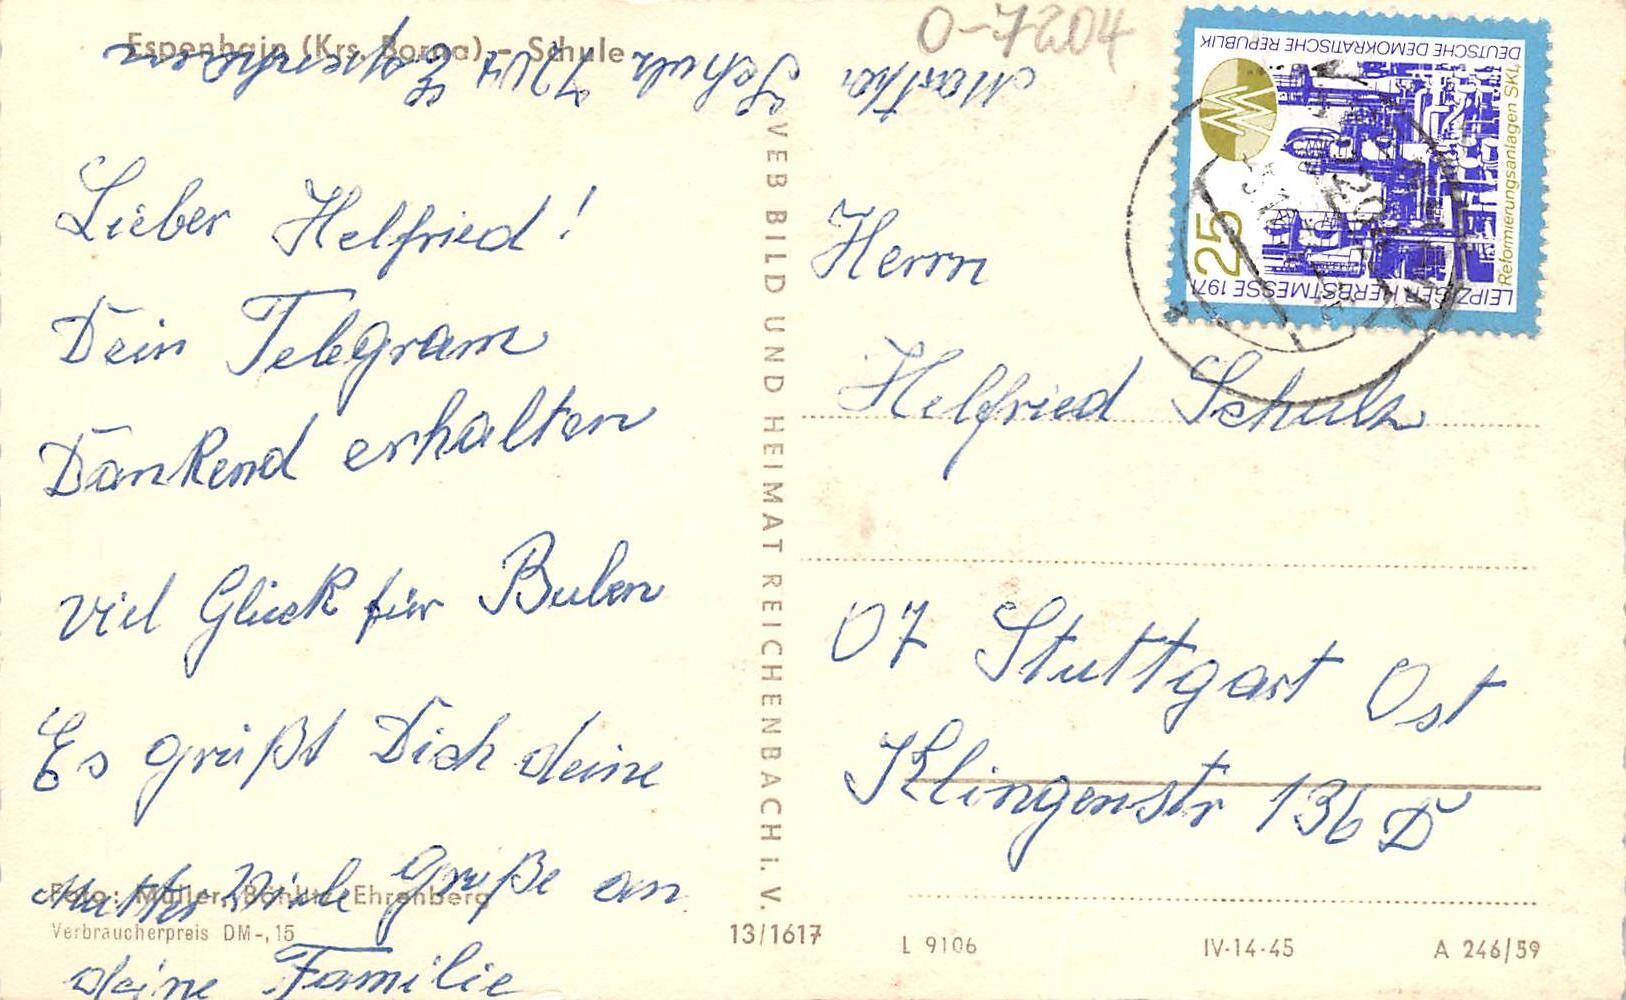 Espenhain (Krs. Borna) – Schule
Martha Schulz 7204 Espenhain
O-7204
DEUTSCHE DEMOKRATISCHE REPUBLIK
25
LEIPZIGER HERBSTMESSE 1971
Reformierungsanlagen SKL
Lieber Helfried!
Dein Telegram
Dankend erhalten
viel Glück für Buben
Es grüßt Dich deine
Mutter Viele Grüße an
deine Familie
VEB BILD UND HEIMAT REICHENBACH i. V.
Herrn
Helfried Schulz
07 Stuttgart Ost
Klingenstr 136 D
Foto: Müller, Böhlitz-Ehrenberg
Verbraucherpreis DM -,15
13/1617
L 9106
IV-14-45
A 246/59